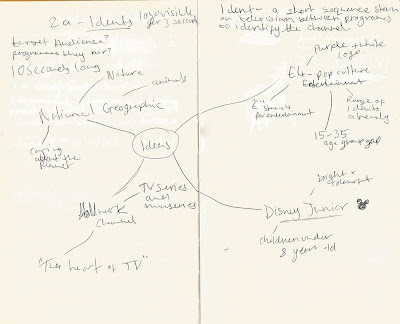 2a - Idents
logo visible
for 3 seconds
target Audience?
programmes they air?
10 seconds long
Ident - a short sequence shown
on television between programmes
to identify the channel.
Nature
animals
National Geographic
caring
about the
planet
Purple + white
logo
E4 - pop culture
Entertainment
"E" stands
for entertainment
Range of
idents
already
15-35
age group gap
Ideas
TV series
and
miniseries
Hallmark
Channel
"The heart of TV"
bright +
colourful
Disney Junior
children under
8 years old